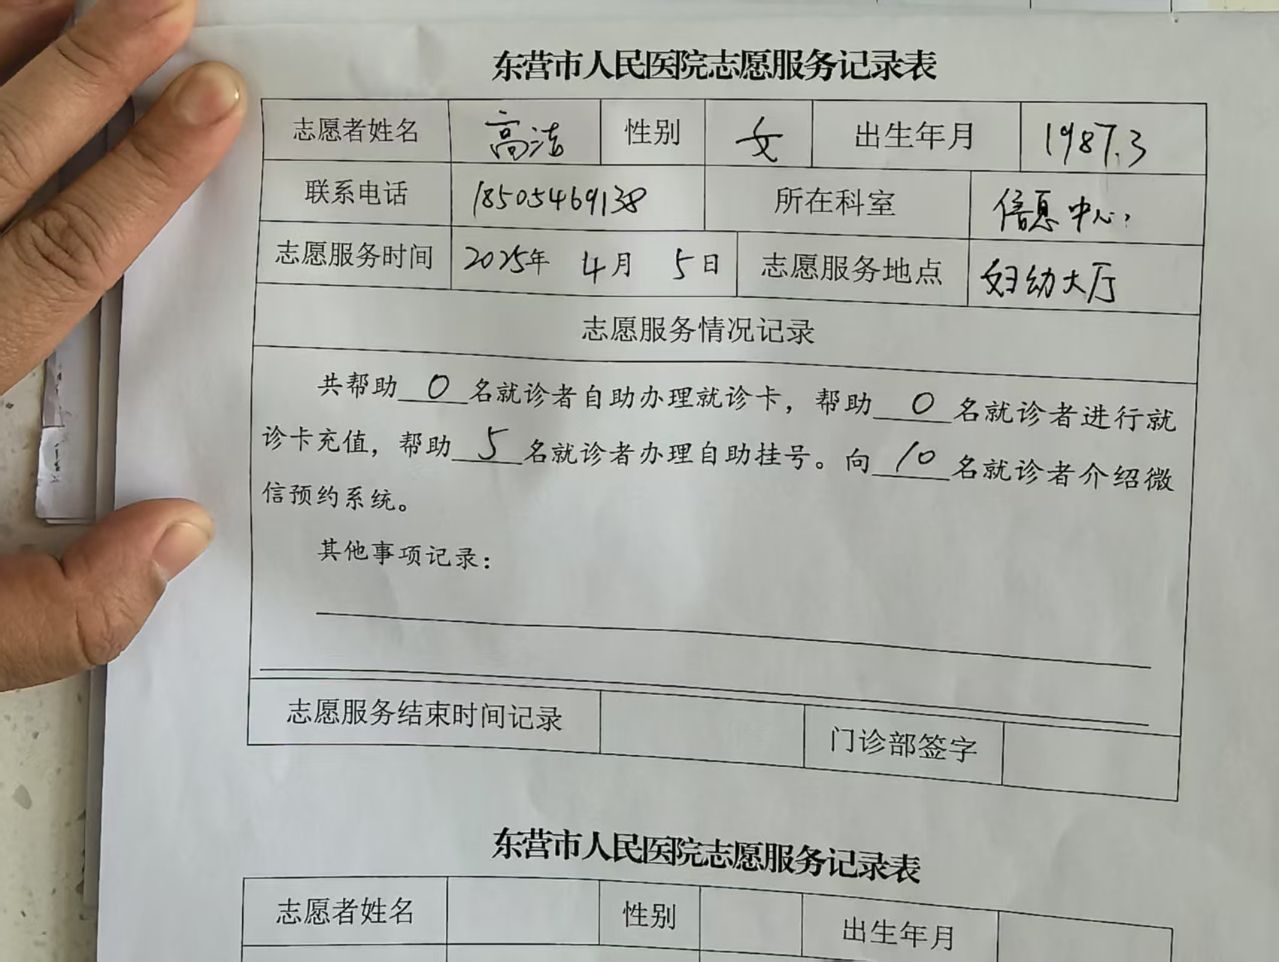 东营市人民医院志愿服务记录表
志愿者姓名 高洁 性别 女 出生年月 1987.3
联系电话 18505469138 所在科室 信息中心
志愿服务时间 2025年 4月 5日 志愿服务地点 妇幼大厅
志愿服务情况记录
共帮助 0 名就诊者自助办理就诊卡，帮助 0 名就诊者进行就
诊卡充值，帮助 5 名就诊者办理自助挂号。向 10 名就诊者介绍微
信预约系统。
其他事项记录：
志愿服务结束时间记录 门诊部签字
东营市人民医院志愿服务记录表
志愿者姓名 性别 出生年月